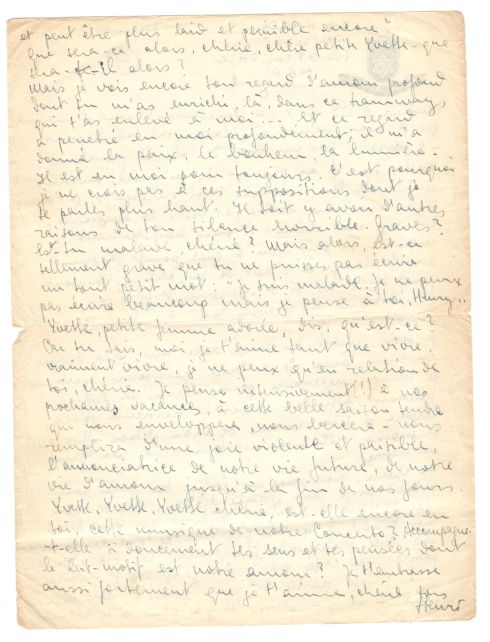 et peut être plus laid et pénible encore"
Que sera-ce alors, chérie, chère petite Yvette - que
sera-t-il alors?
Mais je vois encore ton regard d'amour profond
dont tu m'as enrichi, là, dans ce tramway,
qui t'as enlevé à moi... Et ce regard
a penetré en moi profondement; il m'a
donné la paix, le bonheur, la lumière -
Il est en moi pour toujours. C'est pourquoi
je ne crois pas à ces suppositions dont je
te parles plus haut. Il doit y avoir d'autres
raisons de ton silence horrible. Graves?
Es-tu malade, chérie? Mais alors, est-ce
tellement grave que tu ne puisses pas écrire
un tout petit mot: "Je suis malade, je ne peux
pas écrire beaucoup mais je pense à toi, Henry"..
Yvette, petite femme adorée, dis, qu'est-ce?
Car tu sais, moi, je t'aime tant que vivre,
vraiment vivre, je ne peux qu'en relation de
toi, chérie. Je pense intensivement(!) à nos
prochaines vacances, à cette belle saison tendre
qui nous enveloppera, nous bercera - nous
remplira d'une joie violente et paisible,
l'annonciatrice de notre vie future, de notre
vie d'amour jusqu'à la fin de nos jours.
Yvette, Yvette, Yvette chérie, est-elle encore en
toi, cette musique de notre Concerto? Accompagne-
t-elle si doucement tes sens et tes pensées dont
le leit-motif est notre amour? Je t'embrasse
aussi fortement que je t'aime, chérie
Henri